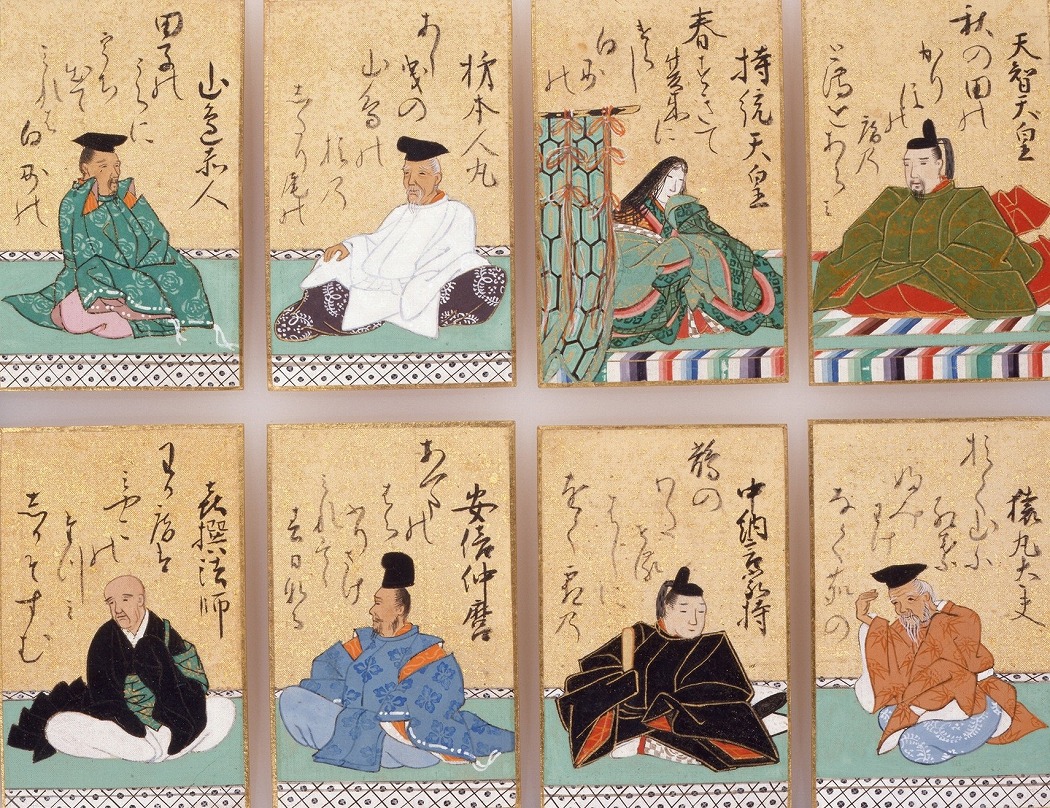 天智天皇
秋の田の
かり
ほの
庵乃
苫をあらみ
持統天皇
春すきて
夏来に
けらし
白妙の
柿本人丸
あし
曳の
山鳥の
おの
しだり尾の
山邊赤人
田子の
うらに
うち
出て
みれは
白妙の
猿丸大夫
おく山に
紅葉
ふみ
わけ
なく鹿の
中納言家持
鵲の
わたせる
はしに
をく霜乃
安倍仲麿
あまの
はら
ふりさけ
みれは
春日なる
喜撰法師
わか庵は
みやこの
たつみ
しかそすむ